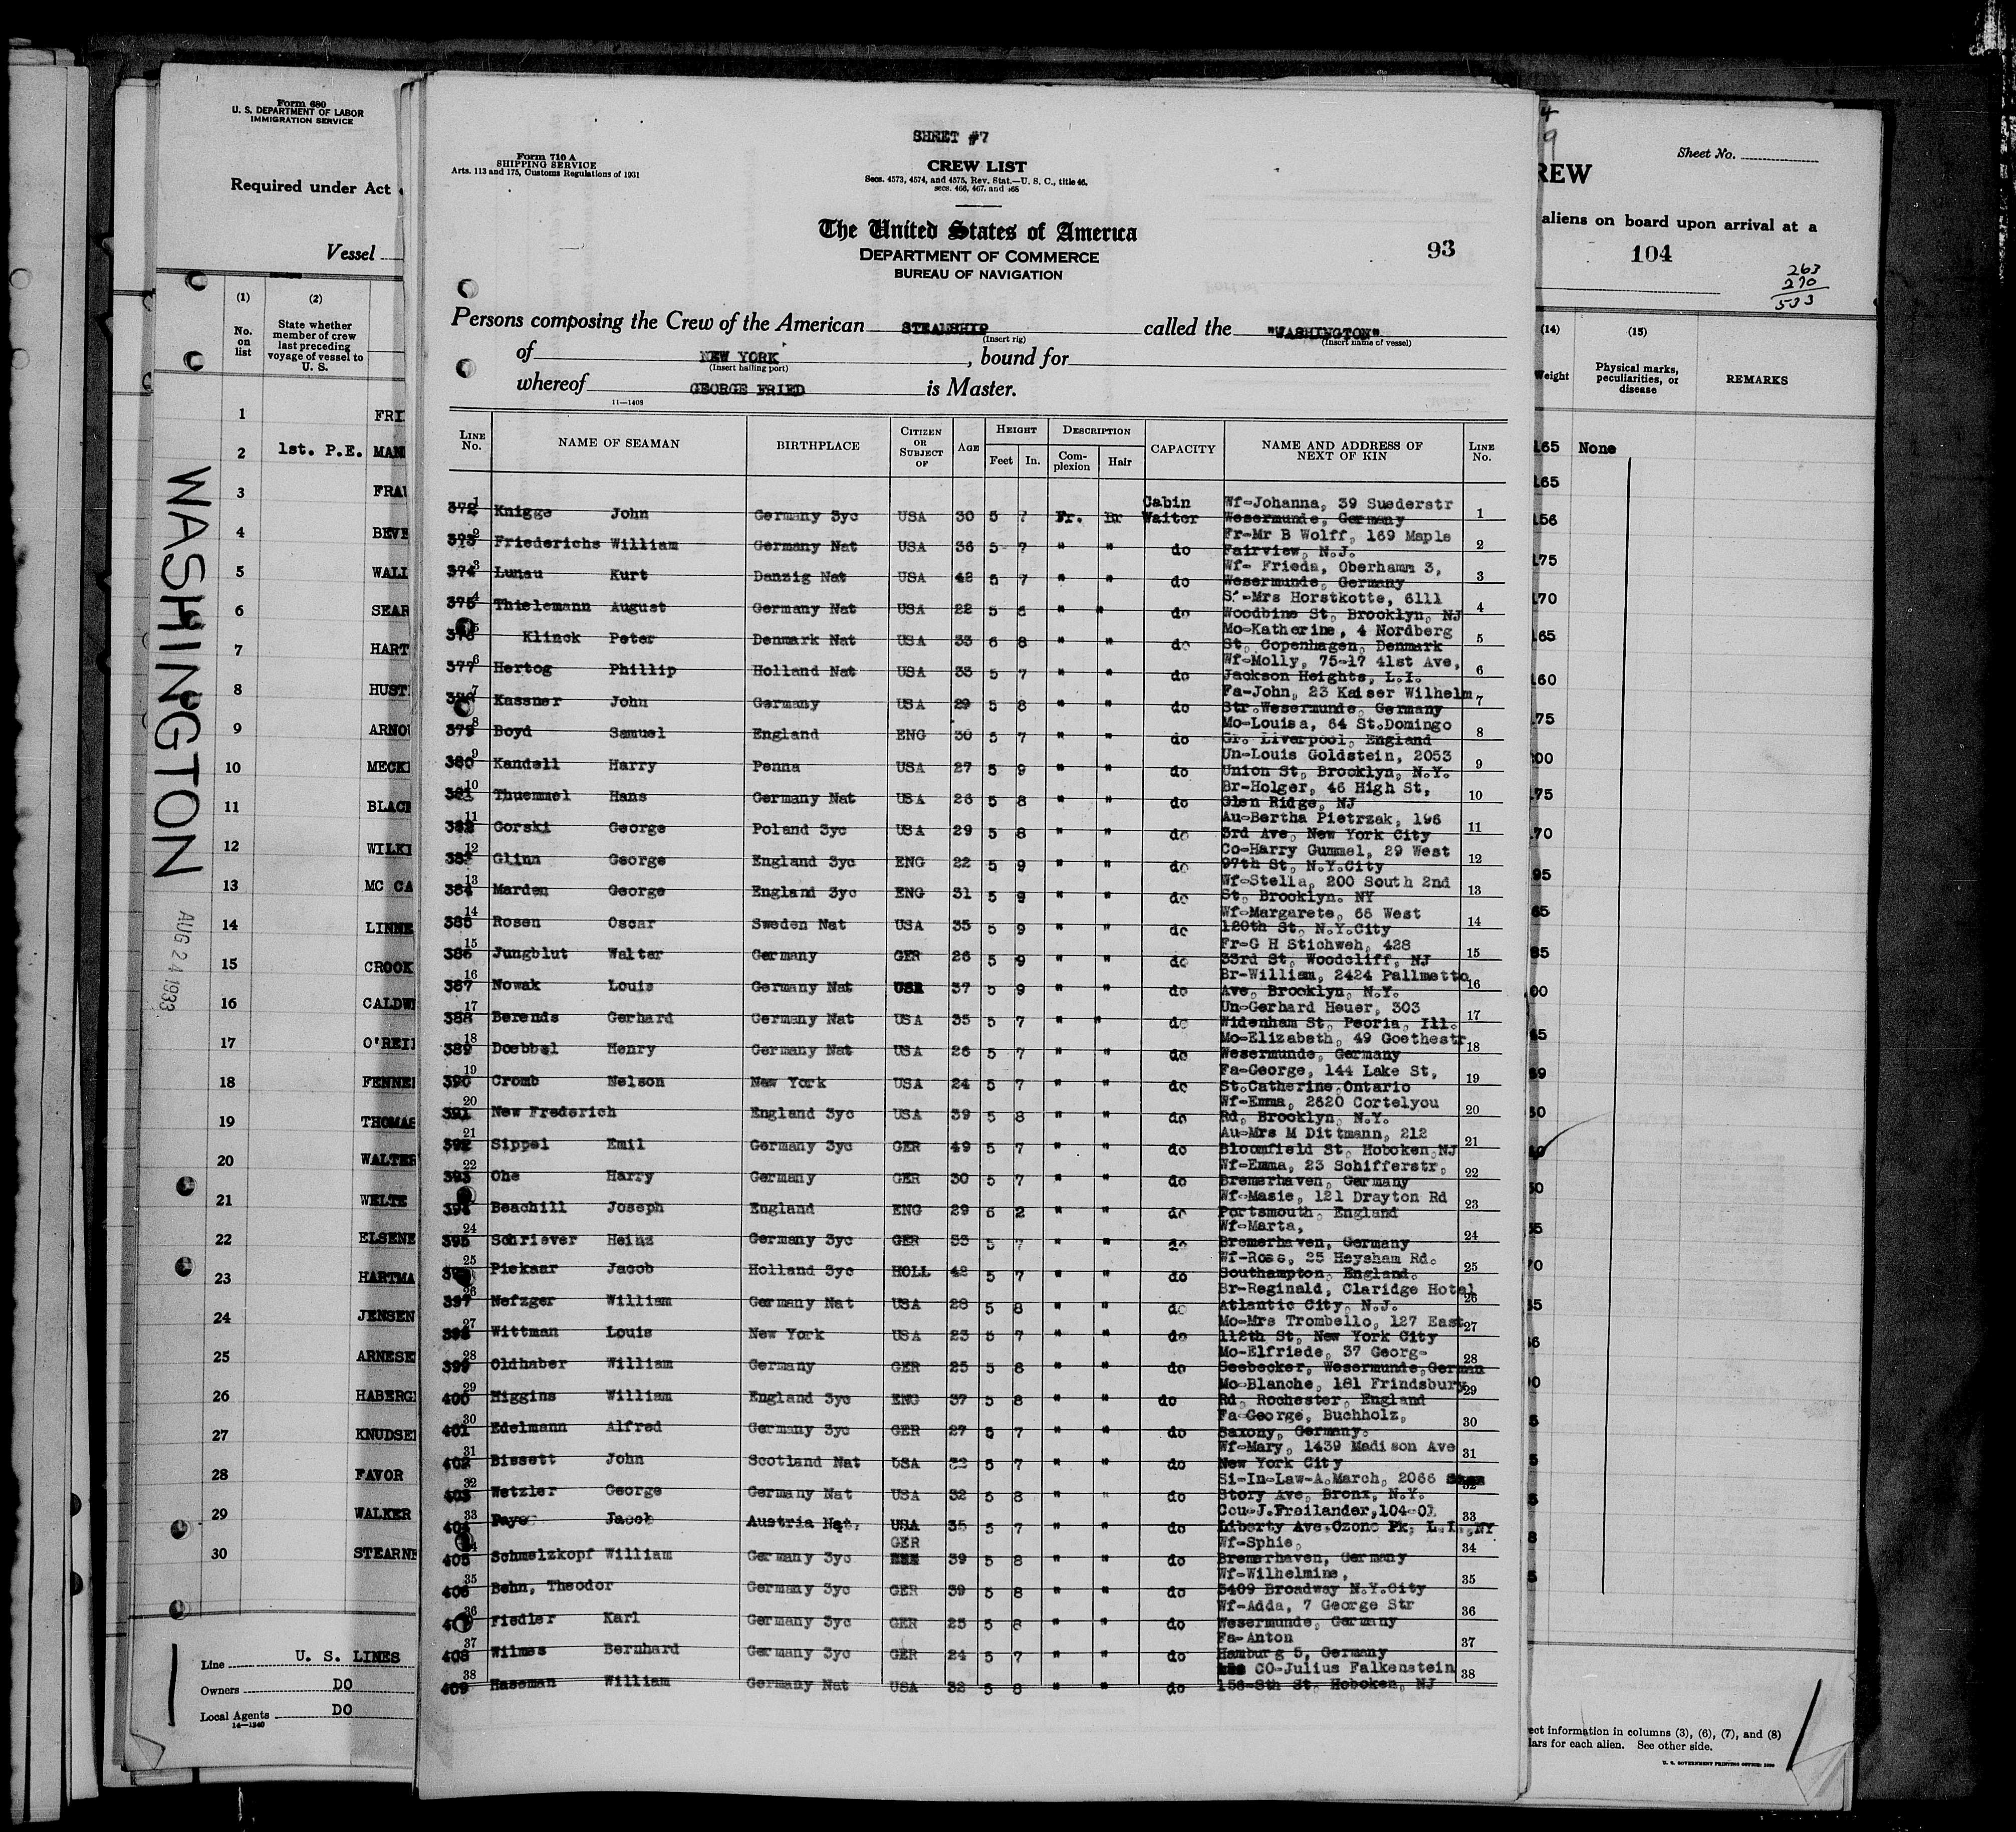 Form 680
U. S. DEPARTMENT OF LABOR
IMMIGRATION SERVICE
Required under Act
Vessel
(1) (2)
No. on list
State whether member of crew last preceding voyage of vessel to U. S.
1 FRI
2 1st. P.E. MAN
3 FRA
4 BEVE
5 WALL
6 SEAR
7 HART
8 HUST
9 ARNO
10 MECK
11 BLACK
12 WILKI
13 MC CA
14 LINNE
15 CROOK
16 CALDW
17 O'REI
18 FENNE
19 THOMAS
20 WALTER
21 WELTE
22 ELSENE
23 HARTMA
24 JENSEN
25 ARNESE
26 HABERG
27 KNUDSE
28 FAVOR
29 WALKER
30 STEARN
Line U. S. LINES
Owners DO
Local Agents DO
14—1240
WASHINGTON
AUG 24 1933
SHEET #7
Form 710 A
SHIPPING SERVICE
Arts. 113 and 175, Customs Regulations of 1931
CREW LIST
Secs. 4573, 4574, and 4575, Rev. Stat.—U. S. C., title 46,
secs. 466, 467, and 468
The United States of America
DEPARTMENT OF COMMERCE
BUREAU OF NAVIGATION
93
Persons composing the Crew of the American STEAMSHIP called the "WASHINGTON"
(Insert rig) (Insert name of vessel)
of NEW YORK, bound for
(Insert hailing port)
whereof GEORGE FRIED is Master.
11—1408
LINE No. NAME OF SEAMAN BIRTHPLACE CITIZEN OR SUBJECT OF AGE HEIGHT Feet In. DESCRIPTION Complexion Hair CAPACITY NAME AND ADDRESS OF NEXT OF KIN LINE No.
372 1 Knigge John Germany 3yc USA 30 5 7 Fr. Br Cabin Waiter Wf-Johanna, 39 Suederstr Wesermunde, Germany 1
373 2 Friederichs William Germany Nat USA 36 5 7 " " do Fr-Mr B Wolff, 169 Maple Fairview, N.J. 2
374 3 Lunau Kurt Danzig Nat USA 42 5 7 " " do Wf- Frieda, Oberhamm 3, Wesermunde, Germany 3
375 4 Thielemann August Germany Nat USA 22 5 6 " " do Mrs Horstkotte, 6111 Woodbine St, Brooklyn, NJ 4
376 5 Klinck Peter Denmark Nat USA 33 6 8 " " do Mo-Katherine, 4 Nordberg St, Copenhagen, Denmark 5
377 6 Hertog Phillip Holland Nat USA 33 5 7 " " do Wf-Molly, 75-17 41st Ave, Jackson Heights, L.I. 6
378 7 Kassner John Germany USA 29 5 8 " " do Fa-John, 23 Kaiser Wilhelm Str. Wesermunde, Germany 7
379 8 Boyd Samuel England ENG 30 5 7 " " do Mo-Louisa, 64 St.Domingo Gr. Liverpool, England 8
380 9 Kandell Harry Penna USA 27 5 9 " " do Un-Louis Goldstein, 2053 Union St, Brooklyn, N.Y. 9
381 10 Thuemmel Hans Germany Nat USA 26 5 8 " " do Br-Holger, 46 High St, Glen Ridge, NJ 10
382 11 Gorski George Poland 3yc USA 29 5 8 " " do Au-Bertha Pietrzak, 196 3rd Ave, New York City 11
383 12 Glinn George England 3yc ENG 22 5 9 " " do Co-Harry Gummel, 29 West 97th St, N.Y.City 12
384 13 Marden George England 3yc ENG 31 5 9 " " do Wf-Stella, 200 South 2nd St, Brooklyn. NY 13
385 14 Rosen Oscar Sweden Nat USA 35 5 9 " " do Wf-Margarete, 66 West 120th St, N.Y.City 14
386 15 Jungblut Walter Germany GER 26 5 9 " " do Fr-G H Stichweh, 428 33rd St, Woodcliff, NJ 15
387 16 Nowak Louis Germany Nat USA 37 5 9 " " do Br-William, 2424 Pallmetto Ave, Brooklyn, N.Y. 16
388 17 Berends Gerhard Germany Nat USA 35 5 7 " " do Un-Gerhard Heuer, 303 Widenham St, Peoria, Ill. 17
389 18 Doebbel Henry Germany Nat USA 26 5 7 " " do Mo-Elizabeth, 49 Goethestr Wesermunde, Germany 18
390 19 Cromb Nelson New York USA 24 5 7 " " do Fa-George, 144 Lake St, St.Catherine,Ontario 19
391 20 New Frederich England 3yc USA 39 5 8 " " do Wf-Emma, 2620 Cortelyou Rd, Brooklyn, N.Y. 20
392 21 Sippel Emil Germany 3yc GER 49 5 7 " " do Au-Mrs M Dittmann, 212 Bloomfield St, Hoboken,NJ 21
393 22 Ohe Harry Germany GER 30 5 7 " " do Wf-Emma, 23 Schifferstr, Bremerhaven, Germany 22
394 23 Beachill Joseph England ENG 29 6 2 " " do Wf-Masie, 121 Drayton Rd Portsmouth, England 23
395 24 Schriever Heinz Germany 3yc GER 33 5 7 " " do Wf-Marta, Bremerhaven, Germany 24
396 25 Piekaar Jacob Holland 3yc HOLL 42 5 7 " " do Wf-Ross, 25 Heysham Rd. Southampton, England. 25
397 26 Nefzger William Germany Nat USA 28 5 8 " " do Br-Reginald, Claridge Hotel Atlantic City, N.J. 26
398 27 Wittman Louis New York USA 23 5 7 " " do Mo-Mrs Trombello, 127 East 112th St, New York City 27
399 28 Oldhaber William Germany GER 25 5 8 " " do Mo-Elfriede, 37 Georg- Seebecker, Wesermunde,German 28
400 29 Higgins William England 3yc ENG 37 5 8 " " do Mo-Blanche, 181 Frindsbury Rd, Rochester, England 29
401 30 Edelmann Alfred Germany 3yc GER 27 5 7 " " do Fa-George, Buchholz, Saxony, Germany. 30
402 31 Bissett John Scotland Nat USA 32 5 7 " " do Wf-Mary, 1439 Madison Ave New York City 31
403 32 Wetzler George Germany Nat USA 32 5 8 " " do Si-In-Law-A.March, 2066 Story Ave, Bronx, N.Y. 32
404 33 Jacob Austria Nat. USA 35 5 7 " " do Cou-J.Freilander,104-01 Liberty Ave.Ozone Pk, L.I.,NY 33
405 34 Schmelzkopf William Germany 3yc GER 39 5 8 " " do Wf-Sphie, Bremerhaven, Germany 34
406 35 Behn, Theodor Germany 3yc GER 39 5 8 " " do Wf-Wilhelmine, 3409 Broadway N.Y.City 35
407 36 Fiedler Karl Germany 3yc GER 25 5 8 " " do Wf-Adda, 7 George Str Wesermunde, Germany 36
408 37 Wilmes Bernhard Germany 3yc GER 24 5 7 " " do Fa-Anton Hamburg 5, Germany 37
409 38 Haseman William Germany Nat USA 32 5 8 " " do CO-Julius Falkenstein 156-8th St, Hoboken, NJ 38
Sheet No.
REW
aliens on board upon arrival at a
104
263
270
533
(14) (15)
Weight
Physical marks, peculiarities, or disease
REMARKS
165 None
165
156
175
170
165
160
175
200
175
170
95
65
85
00
45
ect information in columns (3), (6), (7), and (8)
lars for each alien. See other side.
U. S. GOVERNMENT PRINTING OFFICE